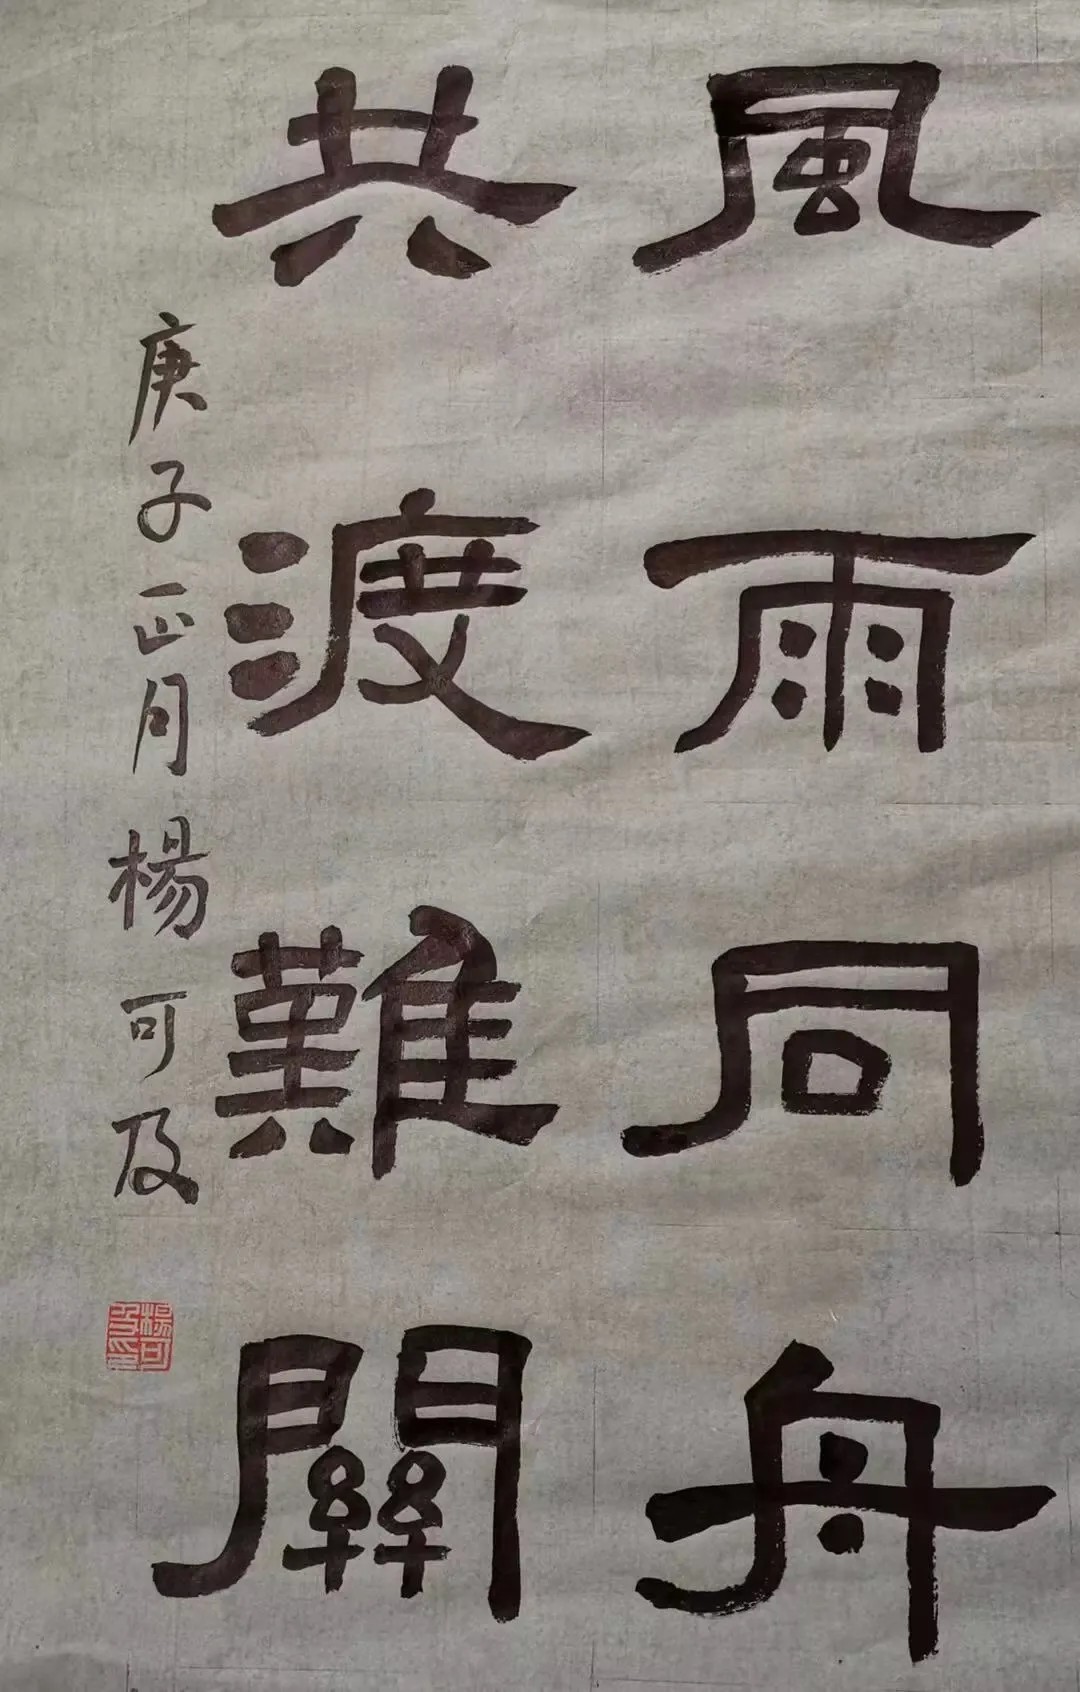 風雨同舟
共渡難關
庚子正月楊可及